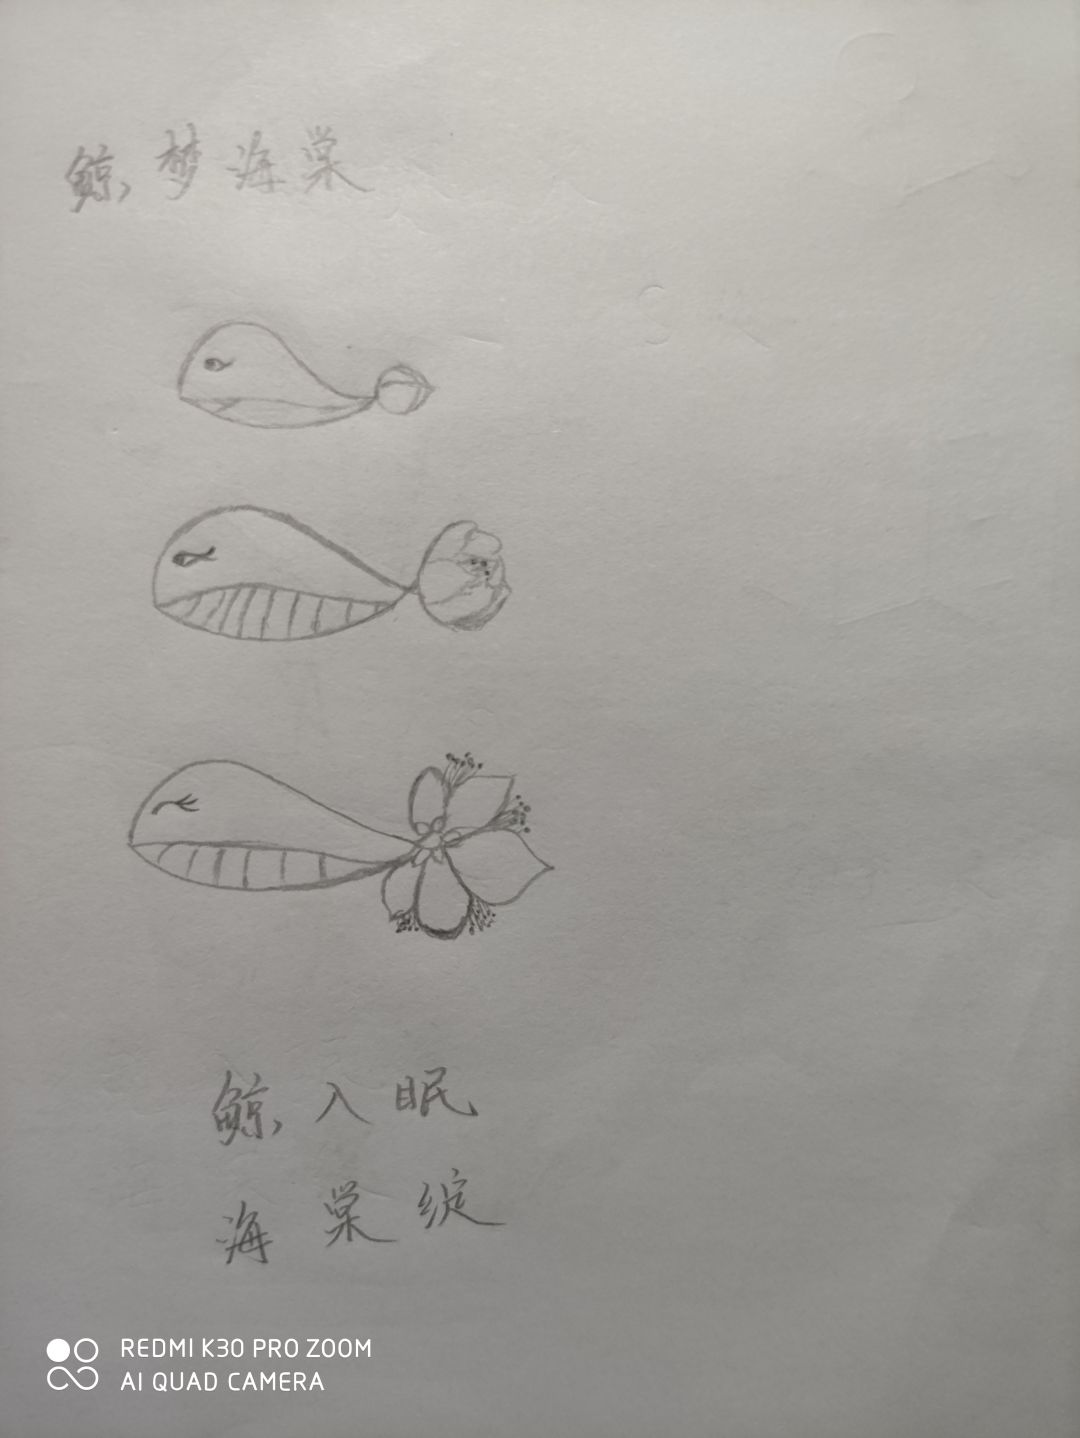 鲸,梦海棠
鲸,入眠
海棠绽
REDMI K30 PRO ZOOM
AI QUAD CAMERA